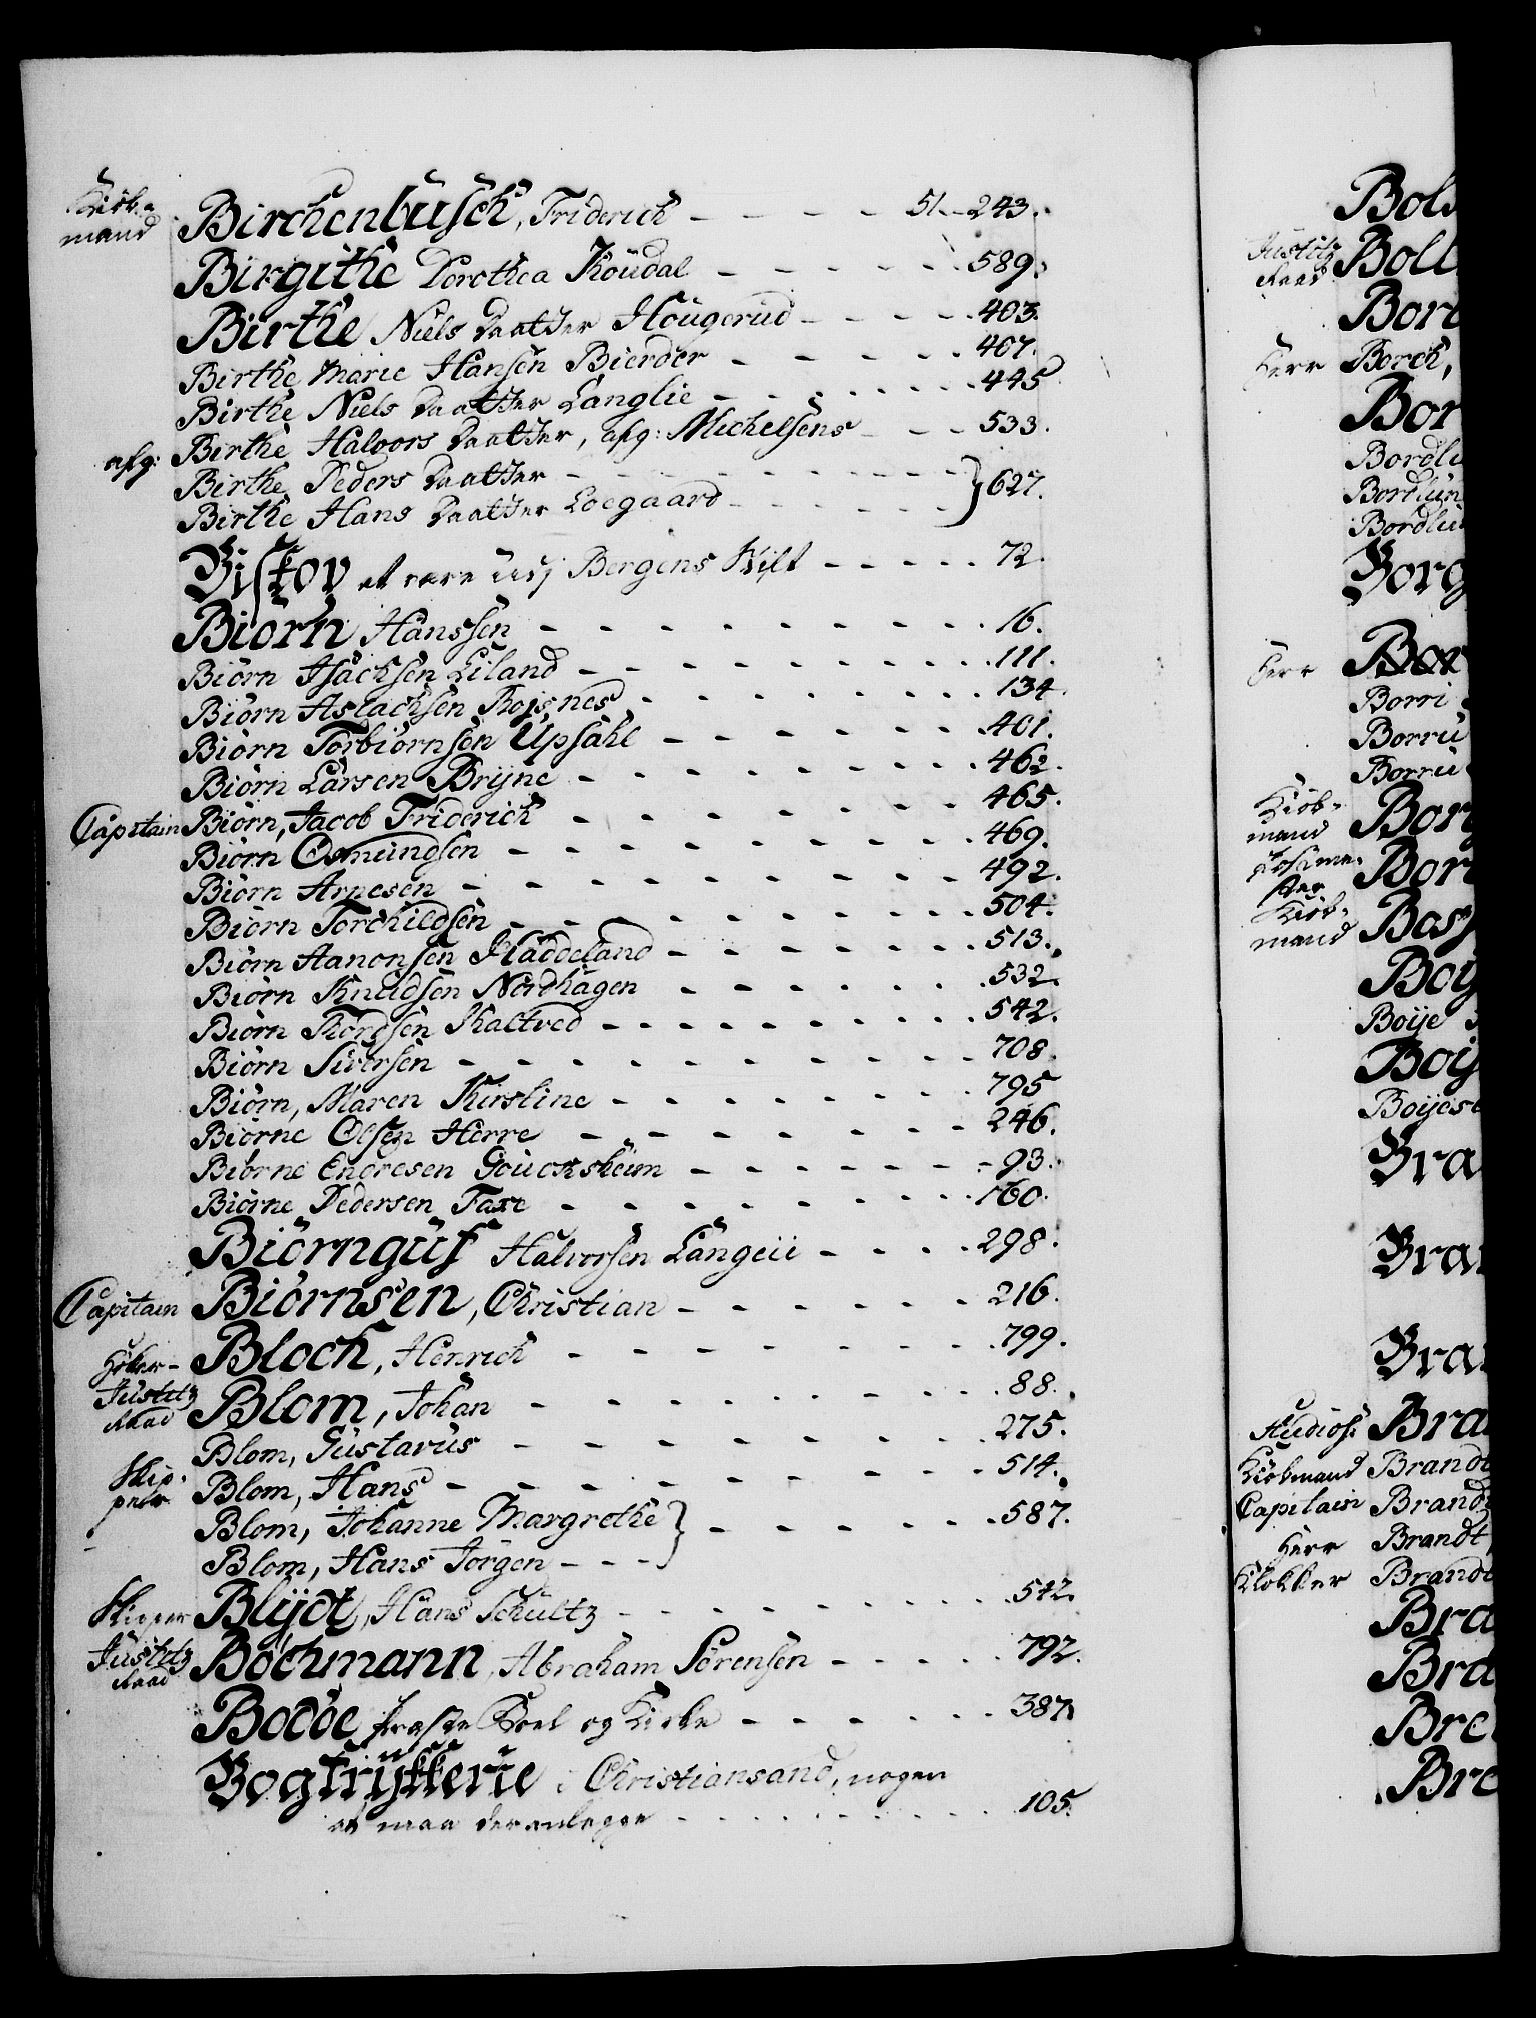 Kiöb-
mand Birchenbüsch, Friderich - - - - 51. 243.
Birgithe Dorothea Koüdal - - - - - 589.
Birthe Niels Daatter Hougerud - - - - 403.
Birthe Marie Hansen Bierder - - - - - 407.
Birthe Niels Daatter Langlie - - - - - - 445
afg: Birthe Halvors Daatter, afg: Michelsens - - - 533.
Birthe Peders Daatter - - - - - -
Birthe Hans Daatter Loegaard - - - - - } 627.
Biskov at være udj Bergens Stift - - - - - 72.
Biörn Hanssen - - - - - - - - - 16.
Biörn Isachsen Eiland - - - - - - - - 111.
Biörn Aslachsen Rojsnes - - - - - - - 134.
Biörn Torbiörnsen Upsahl - - - - - - 401.
Biörn Larsen Bryne - - - - - - - - 462.
Capitain Biörn, Jacob Friderich - - - - - - - 465.
Biörn Osmundsen - - - - - - - - 469.
Biörn Arnesen - - - - - - - - - 492.
Biörn Torchildsen - - - - - - - - 504.
Biörn Aanonsen Haddeland - - - - - - 513.
Biörn Knudsen Nordhagen - - - - - - 532.
Biörn Thordsen Kaltved - - - - - - - 542.
Biörn Siversen - - - - - - - - - 708.
Biörn, Maren Kirstine - - - - - - - 795
Biörne Olsen Herre - - - - - - - 246.
Biörne Endresen - - - - - - 93.
Biörne Pedersen Faxe - - - - - - - 160.
Biörnguf Halvorsen Langeii - - - - 298.
Capitain Biörnsen, Christian - - - - - - 216.
Höker- Bloch, Henrich - - - - - - - 799.
Justitz
Raad Blom, Johan - - - - - - - - 88.
Blom, Gustavus - - - - - - - - 275.
Skip-
per Blom, Hans - - - - - - - - 514.
Blom, Johanne Margrethe } - - - - - - 587.
Blom, Hans Jörgen - - -
Skipper Blydt, Hans Schultz - - - - - - - 542.
Justitz
Raad Bochmann, Abraham Sörensen - - - - - 792.
Bodöe Kirke - - - - - - 387.
Bogtrykkerie i Christiansand, nogen
at maa der anlegge - - - - - - - - 105.
Bols
Justitz
Raad Boll
Bor
Herr Borch,
Bor
Bordl
Bordlun
Bordlu
Borg
Herr Bor
Borri
Borru
Borru
Kiöb-
mand Bor
Bor
Kiöb-
mand Bos
Boy
Boye
Boy
Boyes
Bra
Bra
Bra
Studios: Bra
Kiöbmand Brandt
Capitain Brandt
Herr Brandt,
Klokker Brandt
Bra
Bra
Bre
Bre